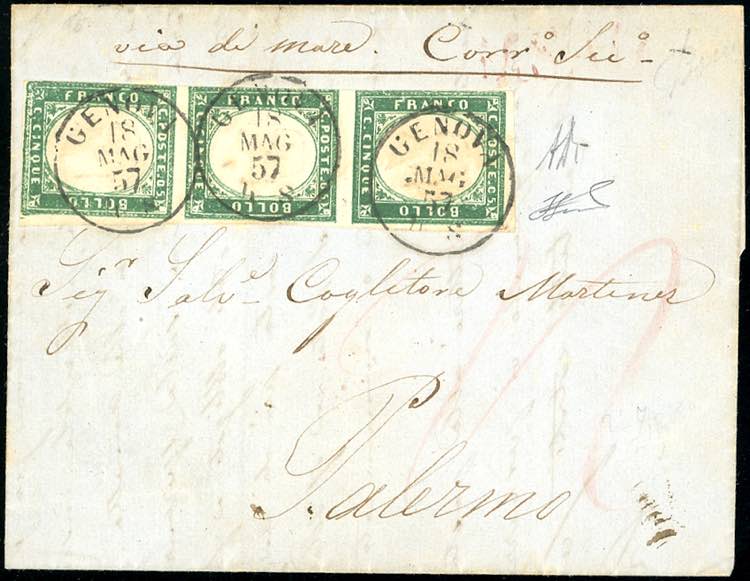 via di mare. Corr.º Sic.º
FRANCO C. CINQUE C. POSTE C. 5 BOLLO
FRANCO C. CINQUE C. POSTE C. 5 BOLLO
FRANCO C. CINQUE C. POSTE C. 5 BOLLO
GENOVA 18 MAG 57
GENOVA 18 MAG 57
GENOVA 18 MAG 57
Sigʳ Salvᵉ Coglitore Martinez
Palermo